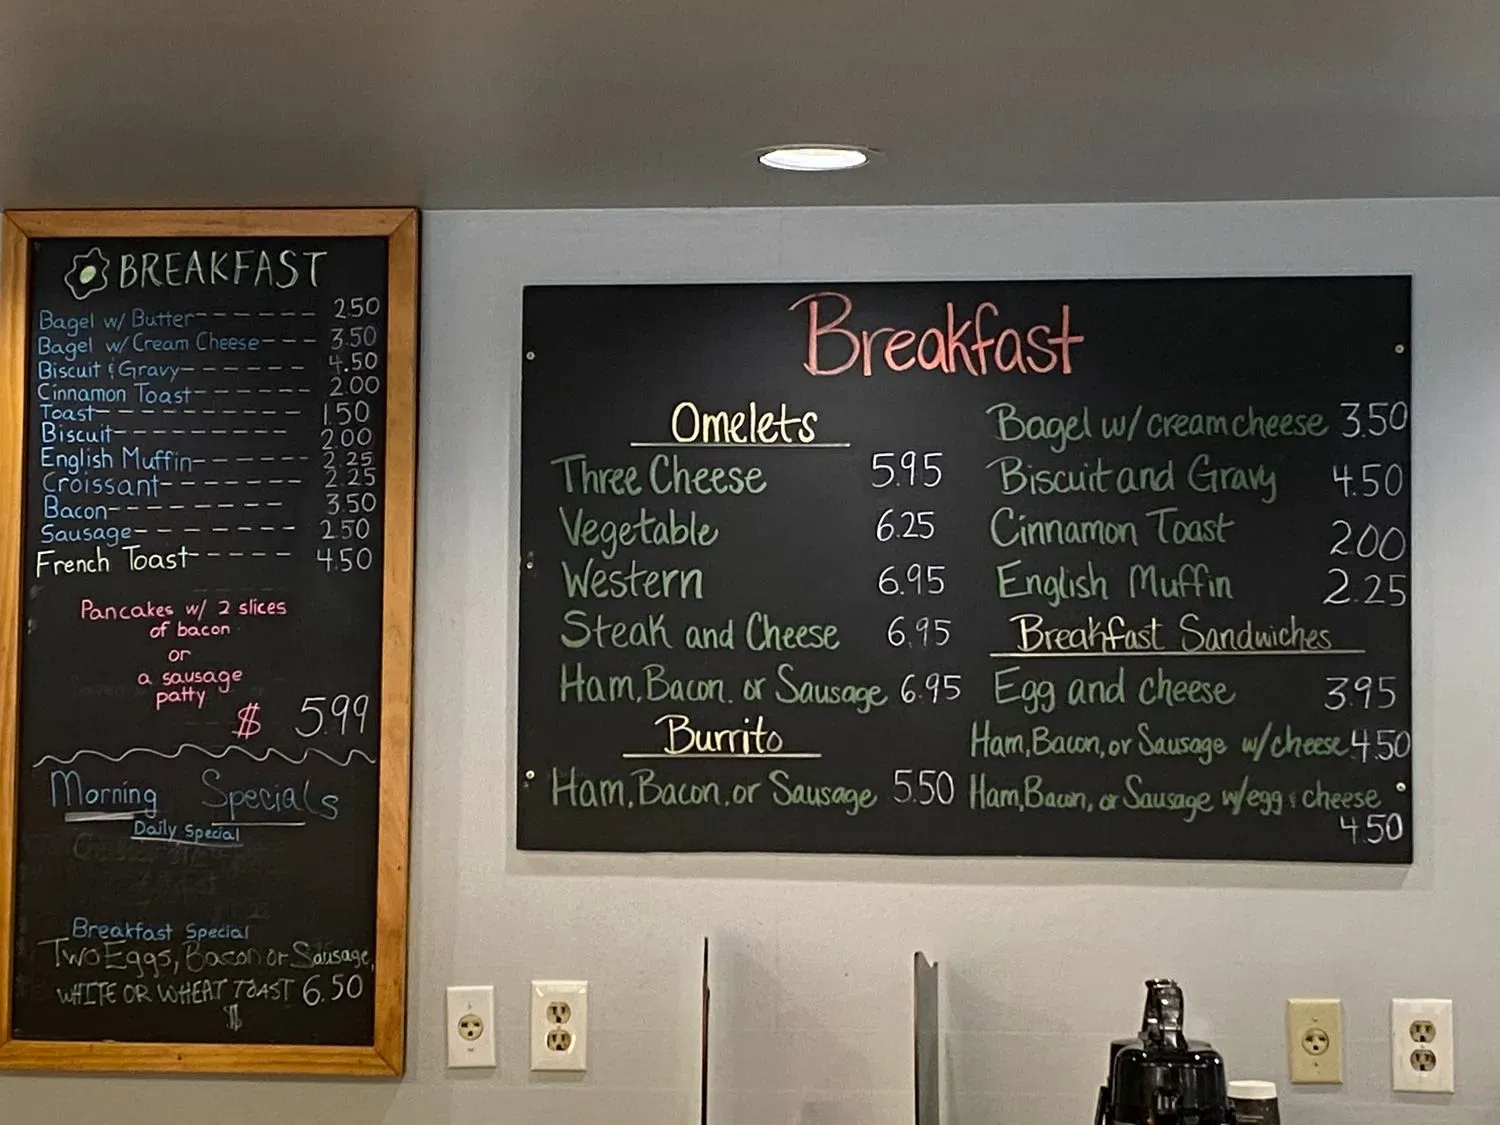 BREAKFAST
Bagel w/ Butter------ 2.50
Bagel w/Cream Cheese--- 3.50
Biscuit & Gravy------ 4.50
Cinnamon Toast------ 2.00
Toast---------- 1.50
Biscuit--------- 2.00
English Muffin------ 2.25
Croissant------- 2.25
Bacon-------- 3.50
Sausage------- 2.50
French Toast----- 4.50
Pancakes w/ 2 slices
of bacon
or
a sausage
patty
$ 5.99
Morning Specials
Daily Special
Breakfast Special
Two Eggs, Bacon or Sausage,
WHITE OR WHEAT TOAST 6.50
$
Breakfast
Omelets
Three Cheese 5.95
Vegetable 6.25
Western 6.95
Steak and Cheese 6.95
Ham, Bacon. or Sausage 6.95
Burrito
Ham, Bacon, or Sausage 5.50
Bagel w/ cream cheese 3.50
Biscuit and Gravy 4.50
Cinnamon Toast 2.00
English Muffin 2.25
Breakfast Sandwiches
Egg and cheese 3.95
Ham, Bacon, or Sausage w/cheese 4.50
Ham, Bacon, or Sausage w/egg & cheese
4.50